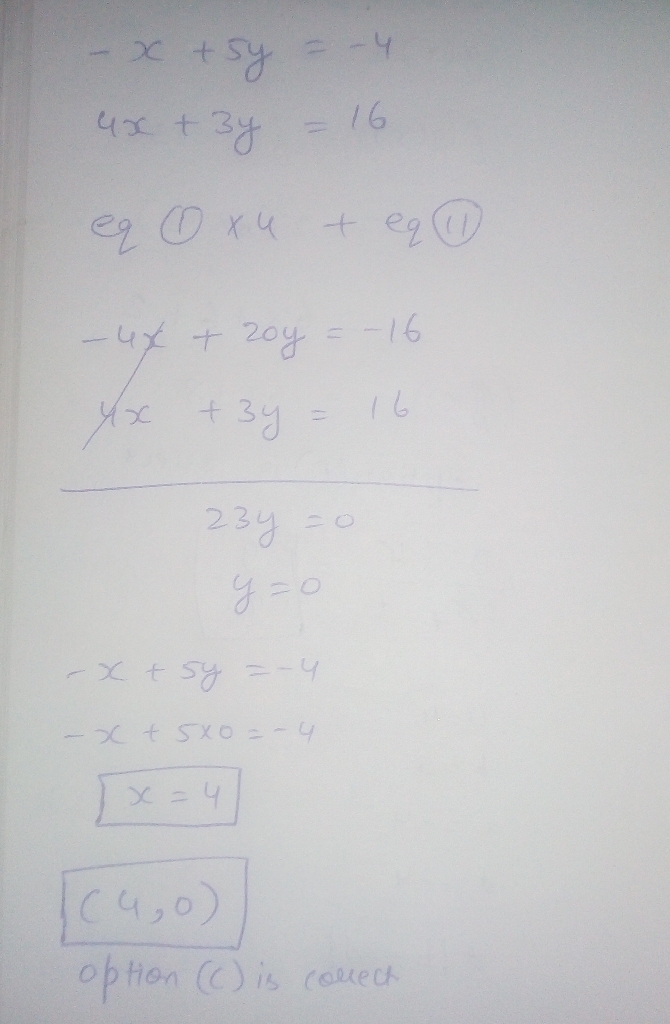 -x + 5y = -4
4x + 3y = 16
eq ① x 4 + eq ⑪
-4x + 20y = -16
4x + 3y = 16
23y = 0
y = 0
-x + 5y = -4
-x + 5x0 = -4
x = 4
(4,0)
option (c) is correct